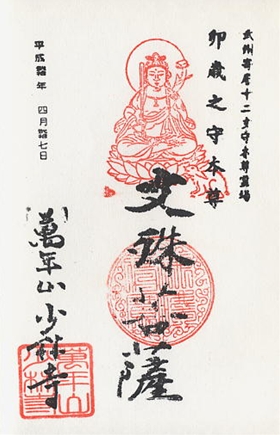 武州寄居十二支守本尊霊場
卯歳之守本尊
文殊菩薩
平成 年 四月 七日
萬年山少林寺